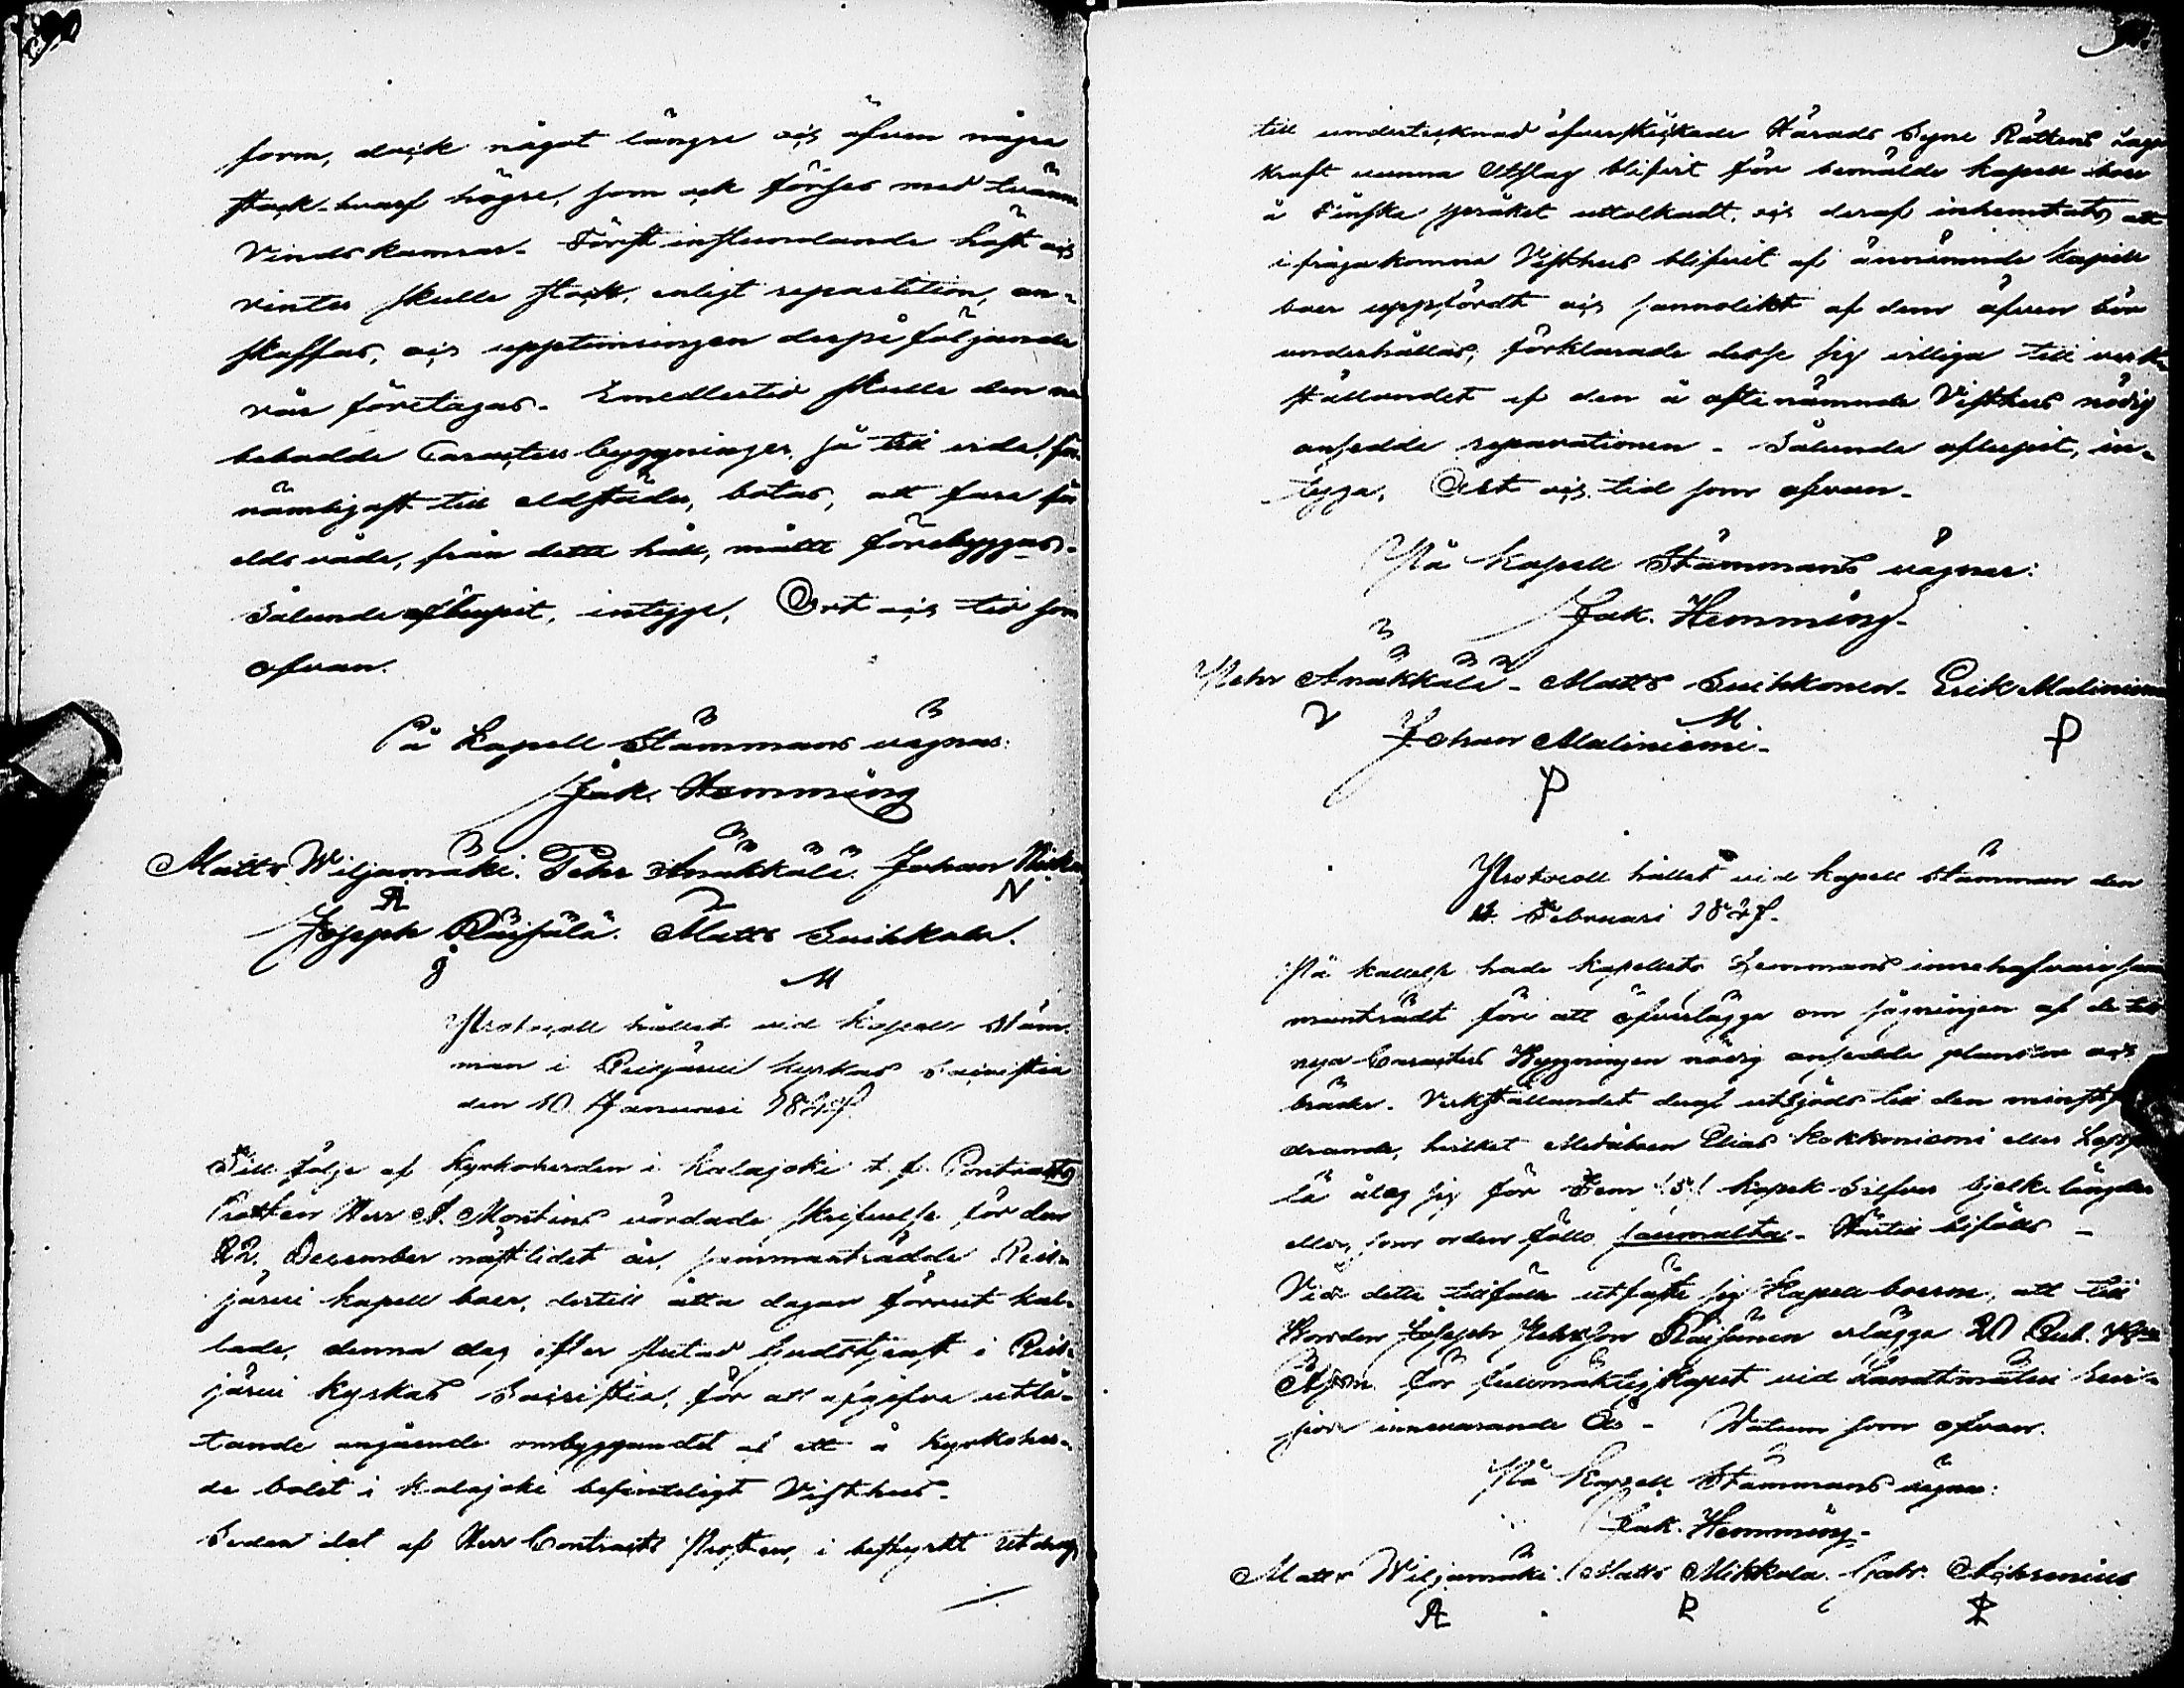 form, dock något längre och äfven några
stock-hvarf högre, som ock förses med tvänne
Vindskamrar. Först instundande höst och
vinter skulle stock, enligt repartition, an-
skaffas, och upptimringen derpå följande
vår företagas. Emedlertid skulle den nu
bebodde Caracters byggningen, så till vida, för-
nämligast till eldstäder, botas, att fara för
eldsvåda, från detta håll, måtte förebyggas.
Sålunda aflupit, intyga, Ort och tid som
ofvan.
På Kapell Stämmans vägnar:
Jak. Hemming
Matts Wiljamäki. Pehr Anäkkälä. Johan
Joseph Räisälä. Matts Suikkola.
M
Protocoll hållet vid Kapell Stäm-
man i Reisjärvi kyrkas Sacristia
den 10 Januari
Till följe af Kyrkoherden i Kalajoki t. f. Contracts
Prosten Herr A. Montins vördade skrifvelse för den
22. December nästlidet år, sammanträdde Reis-
järvi Kapell boer, dertill åtta dagar förut kal-
lade, denna dag efter slutad Gudstjenst i Reis-
järvi kyrkas Sacristia, för att afgifva utlå-
tande angående ombyggandet af ett å Kyrkoher-
de bolet i Kalajoki befinteligt Visthus.
Sedan det af Herr Contracts Prosten, i bestyrkt utdrag,
till undertecknad öfverskickade Härads Syne Rättens Laga
kraft vunna Utslag blifvit för bemälde Kapell boer
å Finska språket uttolkadt, och deraf inhemtats, att
ifrågakomna Visthus blifvit af ännämnde Kapell
boer uppfördt och sannolikt af dem äfven bör
underhållas, förklarade desse sig villiga till verk-
ställandet af den å oftanämnde Visthus nödig
ansedde reparationen. Sålunda aflupit, in-
tyga, Ort och tid som ofvan.
På Kapell Stämmans vägnar:
Jak. Hemming.
Pehr Anäkkälä. Matts Suikkonen. Erik Maliniemi
M
Johan Maliniemi.
Protocoll hållet vid Kapell stämman den
Februari
På kallelse hade Kapellets Hemmans innehafvare sam-
manträdt för att öfverlägga om sågningen af de till
nya Caracters Byggningen nödig ansedde plankor och
bräder. Verkställandet deraf utbjöds till den minstfor-
drande, hvilket Mjölnaren Elias Kokkoniemi eller
lä åtog sig för Fem /5/ Kopek Silfver bjelk. längden
eller, som orden föllo saumalta. Härtill biföllo -
Vid detta tillfälle utfäste sig Kapell boerne, att till
Bonden Joseph Pehrsson Räisänen erlägga 20 Rub.
för fullmäktigskapet vid Landtmäteri
innevarande År. Datum som ofvan.
På Kapell Stämmans vägnar:
Jak. Hemming.
Matts Wiljamäki. Matts Mikkola. Gabr. Achrenius